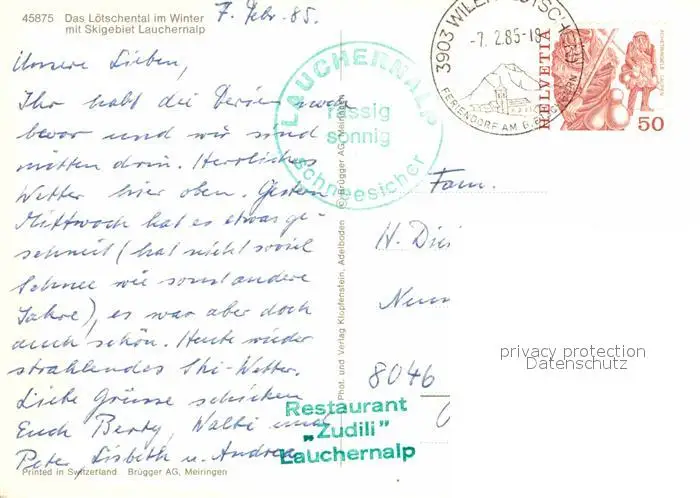 45875 Das Lötschental im Winter
mit Skigebiet Lauchernalp
7. Febr. 85.
Unsere Lieben,
Ihr habt die Ferien noch
bevor und wir sind
mitten drin. Herrliches
Wetter hier oben. Gestern
Mittwoch hat es etwas ge-
schneit (hat nicht soviel
Schnee wie sonst andere
Jahre), es war aber doch
auch schön. Heute wieder
strahlendes Ski-Wetter.
Liebe Grüsse schicken
Euch Berty, Walti und
Peter, Lisbeth u. Andrea
Printed in Switzerland Brügger AG, Meiringen
LAUCHERNALP
rassig
sonnig
schneesicher
Phot. und Verlag Klopfenstein, Adelboden © Brügger AG, Meiringen
3903 WILER
-7. 2.85-18
FERIENDORF AM
HELVETIA
50
Fam.
H.
8046
privacy protection
Datenschutz
Restaurant
„Zudili"
Lauchernalp